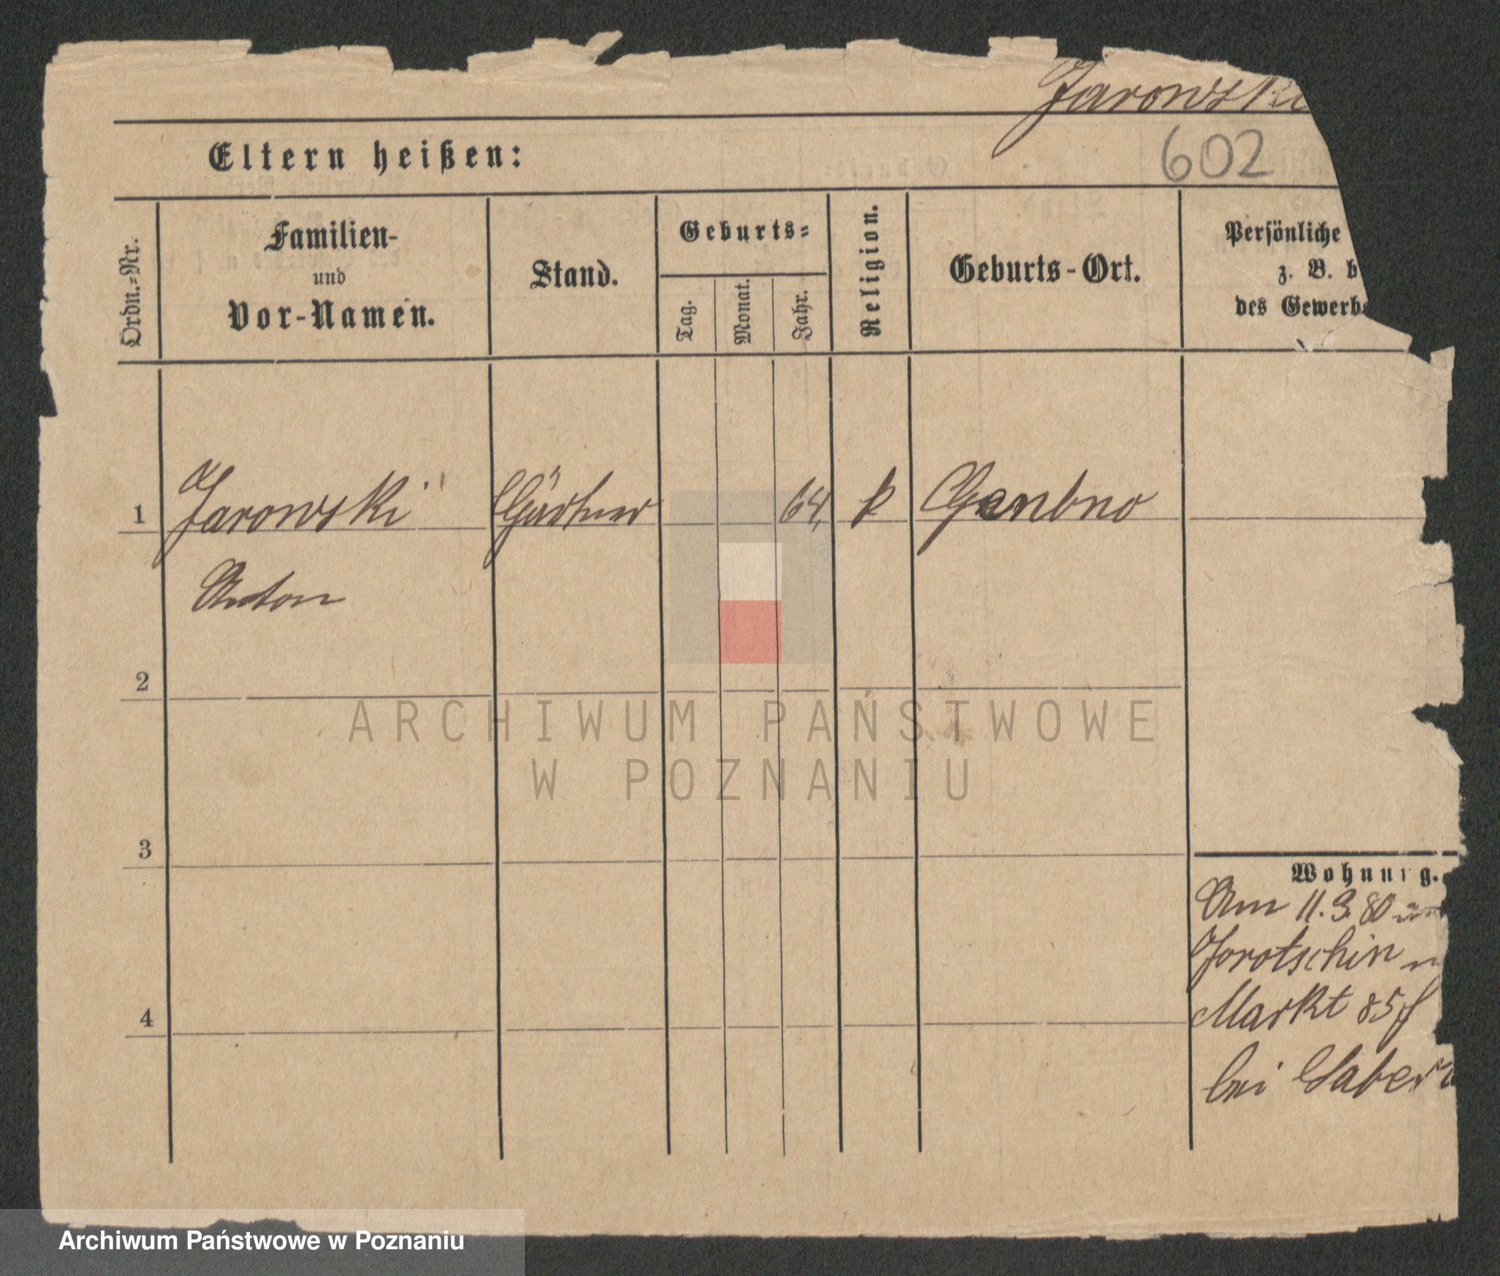 Jarowski
602
Eltern heißen:
Ordn.-Nr.
Familien-
und
Vor-Namen.
Stand.
Geburts-
Tag.
Monat.
Jahr.
Religion.
Geburts-Ort.
Persönliche
z. B. b
des Gewerb
1 Jarowski Gärtner 64. k
Anton
2
3
4
Wohnung.
Am 11.3.80
Jorotschin
Markt 85f
bei Saber
ARCHIWUM PAŃSTWOWE
W POZNANIU
Archiwum Państwowe w Poznaniu